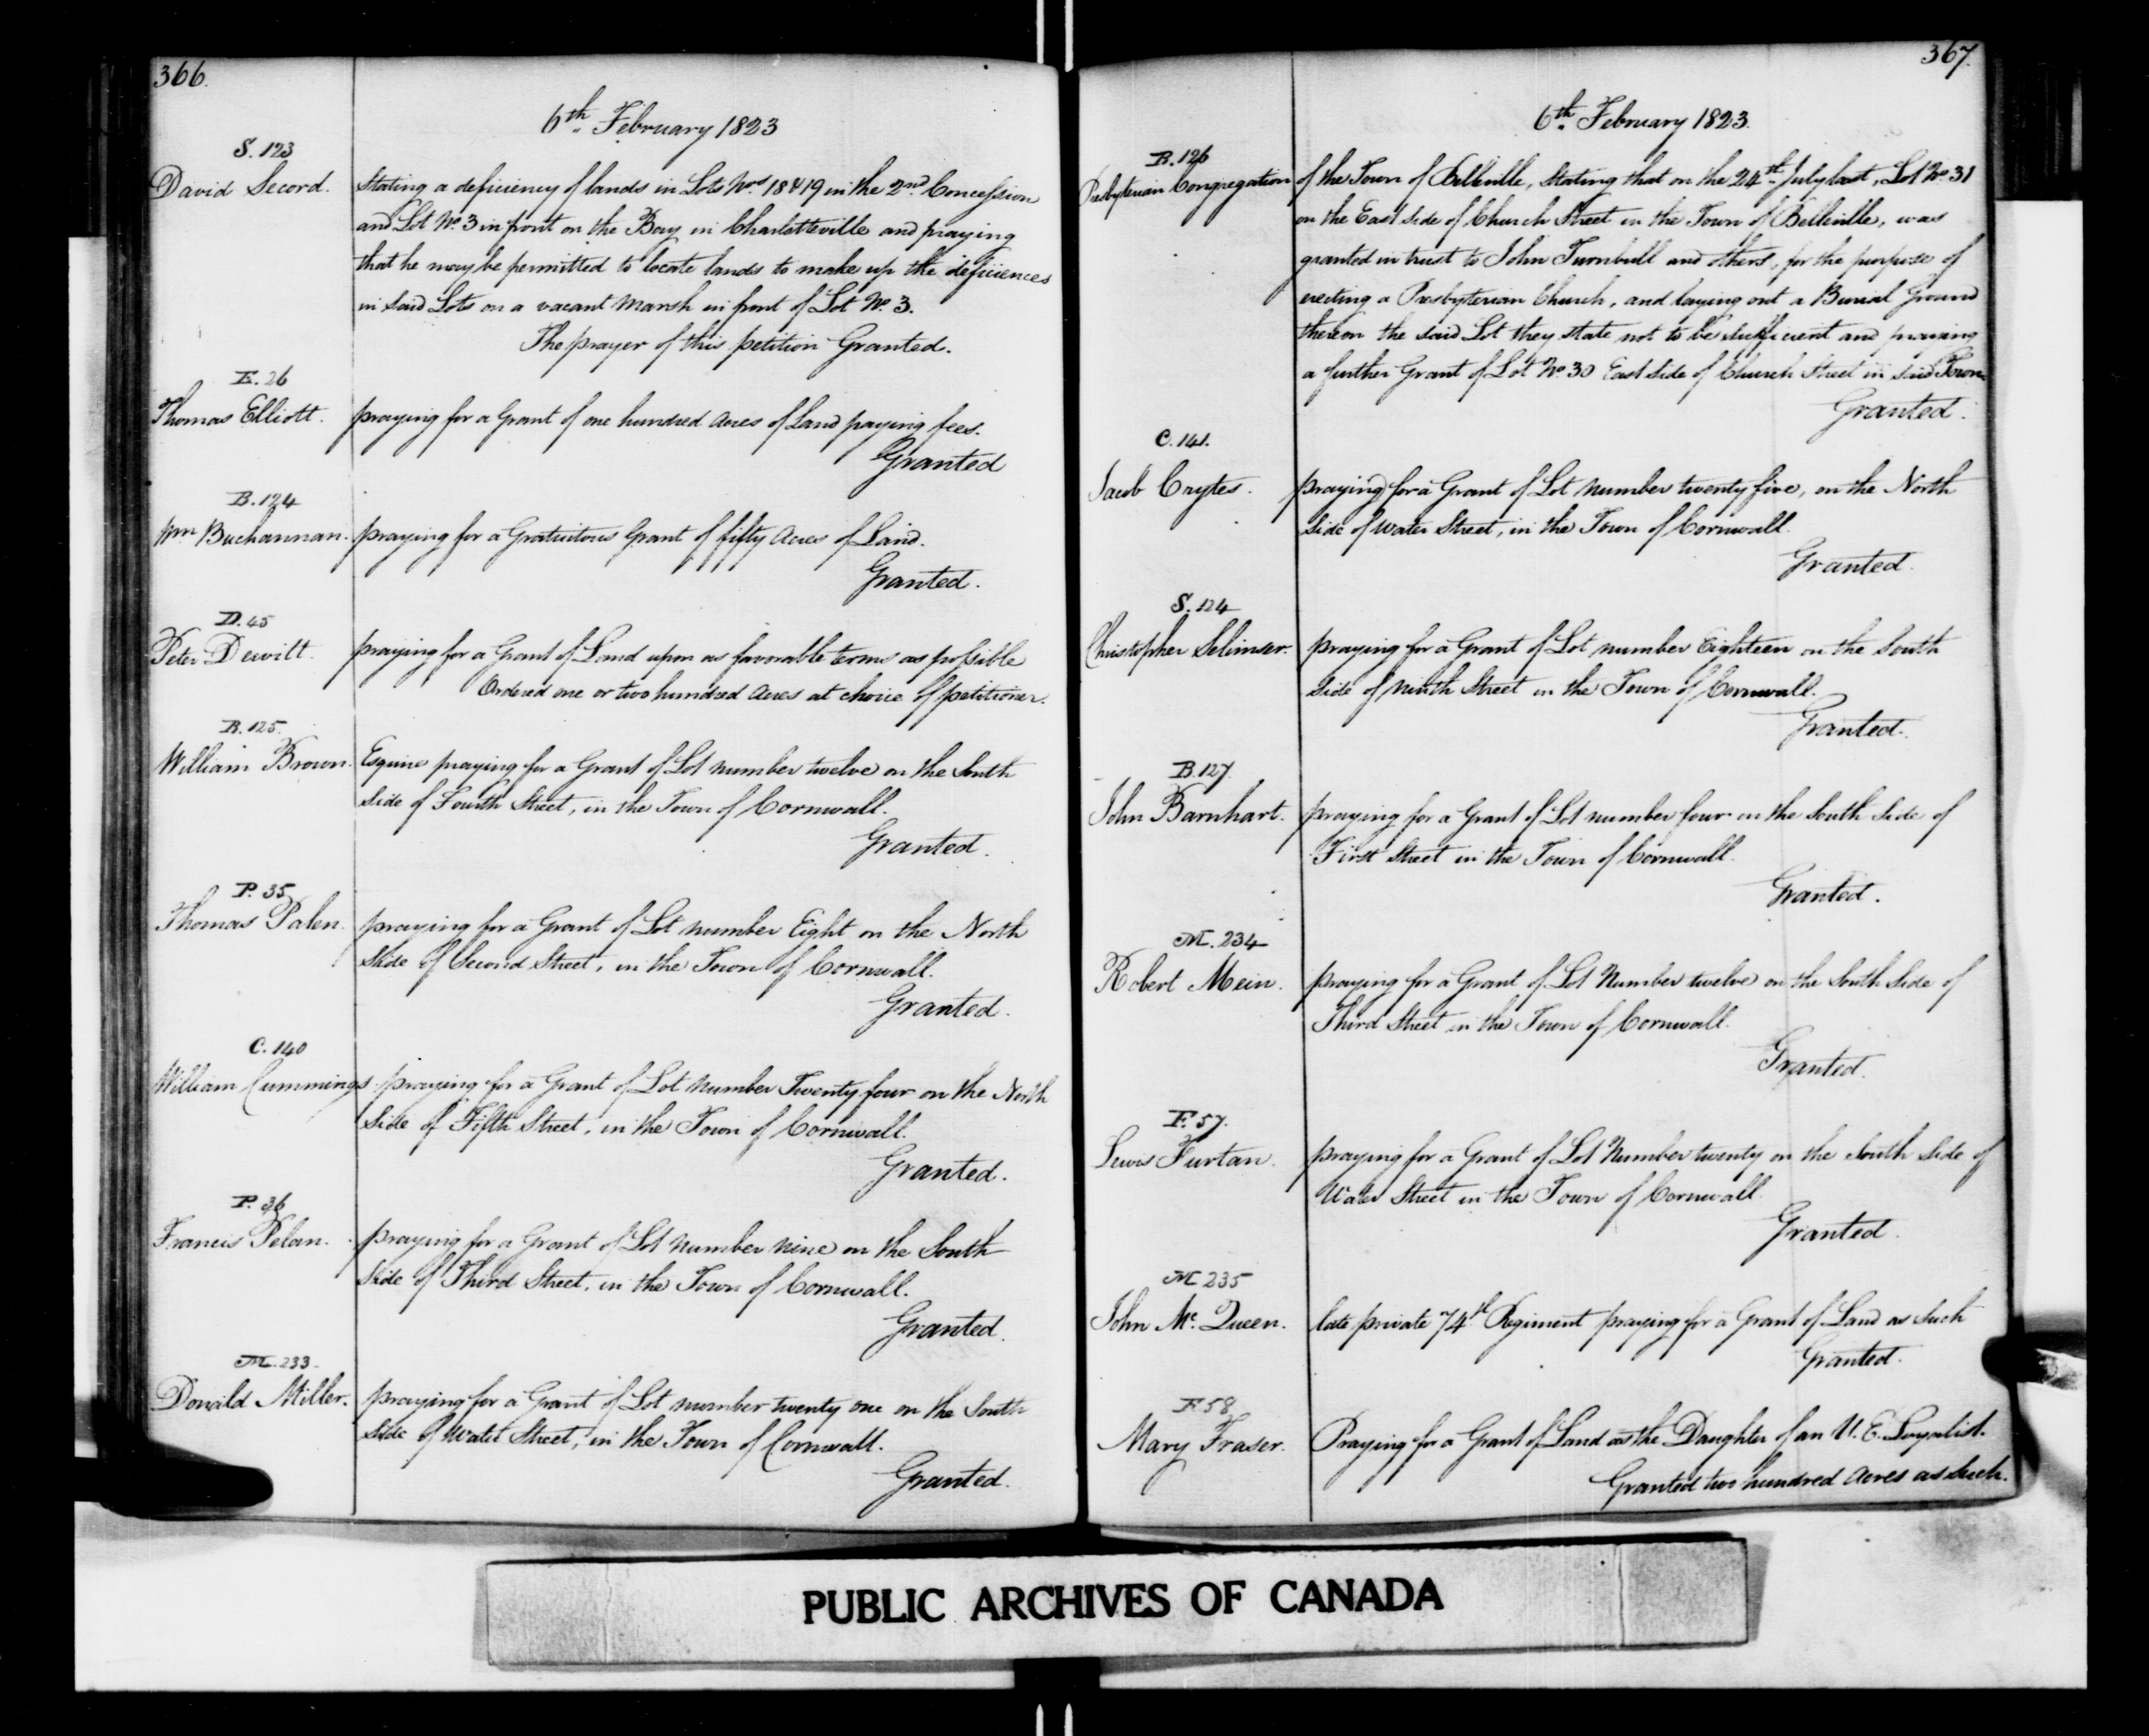 366.
6th February 1823
S. 123
David Secord. Stating a deficiency of lands in Lots Nos 18 & 19 in the 2nd Concession
and Lot No. 3 in front on the Bay in Charlotteville and praying
that he may be permitted to locate lands to make up the deficiences
in said Lots on a vacant Marsh in front of Lot No. 3.
The prayer of this petition Granted.
E. 26
Thomas Elliott. praying for a Grant of one hundred Acres of Land paying fees.
Granted
B. 124
Wm Buchannan. praying for a Gratuitous Grant of fifty Acres of Land.
Granted.
D. 45
Peter Dewitt. praying for a Grant of Land upon as favorable terms as possible
Ordered one or two hundred Acres at choice of petitioner.
B. 125.
William Brown. Esquire praying for a Grant of Lot number twelve on the South
Side of Fourth Street, in the Town of Cornwall.
Granted.
P. 35
Thomas Palen. praying for a Grant of Lot number Eight on the North
Side of Second Street, in the Town of Cornwall.
Granted.
C. 140
William Cummings. praying for a Grant of Lot number Twenty four on the North
Side of Fifth Street, in the Town of Cornwall.
Granted.
P. 36
Francis Pelan. praying for a Grant of Lot number nine on the South
Side of Third Street, in the Town of Cornwall.
Granted.
M. 233
Donald Miller. praying for a Grant of Lot number twenty one on the South
Side of Water Street, in the Town of Cornwall.
Granted.
367.
6th February 1823.
B. 126
Presbyterian Congregation of the Town of Belleville, Stating that on the 24th July last, Lot No. 31
on the East Side of Church Street in the Town of Belleville, was
granted in trust to John Turnbull and others, for the purpose of
erecting a Presbyterian Church, and laying out a Burial Ground
thereon the said Lot they state not to be sufficient and praying
a further Grant of Lot No. 30 East Side of Church Street in said Town
Granted.
C. 141.
Jacob Crytes. praying for a Grant of Lot number twenty five, on the North
Side of Water Street, in the Town of Cornwall.
Granted.
S. 124
Christopher Selimser. praying for a Grant of Lot number Eighteen on the South
Side of Ninth Street in the Town of Cornwall.
Granted.
B. 127.
John Barnhart. praying for a Grant of Lot number four on the South Side of
First Street in the Town of Cornwall.
Granted.
M. 234
Robert Mein. praying for a Grant of Lot Number twelve on the South Side of
Third Street in the Town of Cornwall.
Granted.
F. 57.
Lewis Furtan. praying for a Grant of Lot Number twenty on the South Side of
Water Street in the Town of Cornwall.
Granted.
M 235
John Mc. Queen. late private 74th Regiment praying for a Grant of Land as Such
Granted.
F. 58
Mary Fraser. Praying for a Grant of Land as the Daughter of an U. E. Loyalist.
Granted two hundred Acres as Such.
PUBLIC ARCHIVES OF CANADA